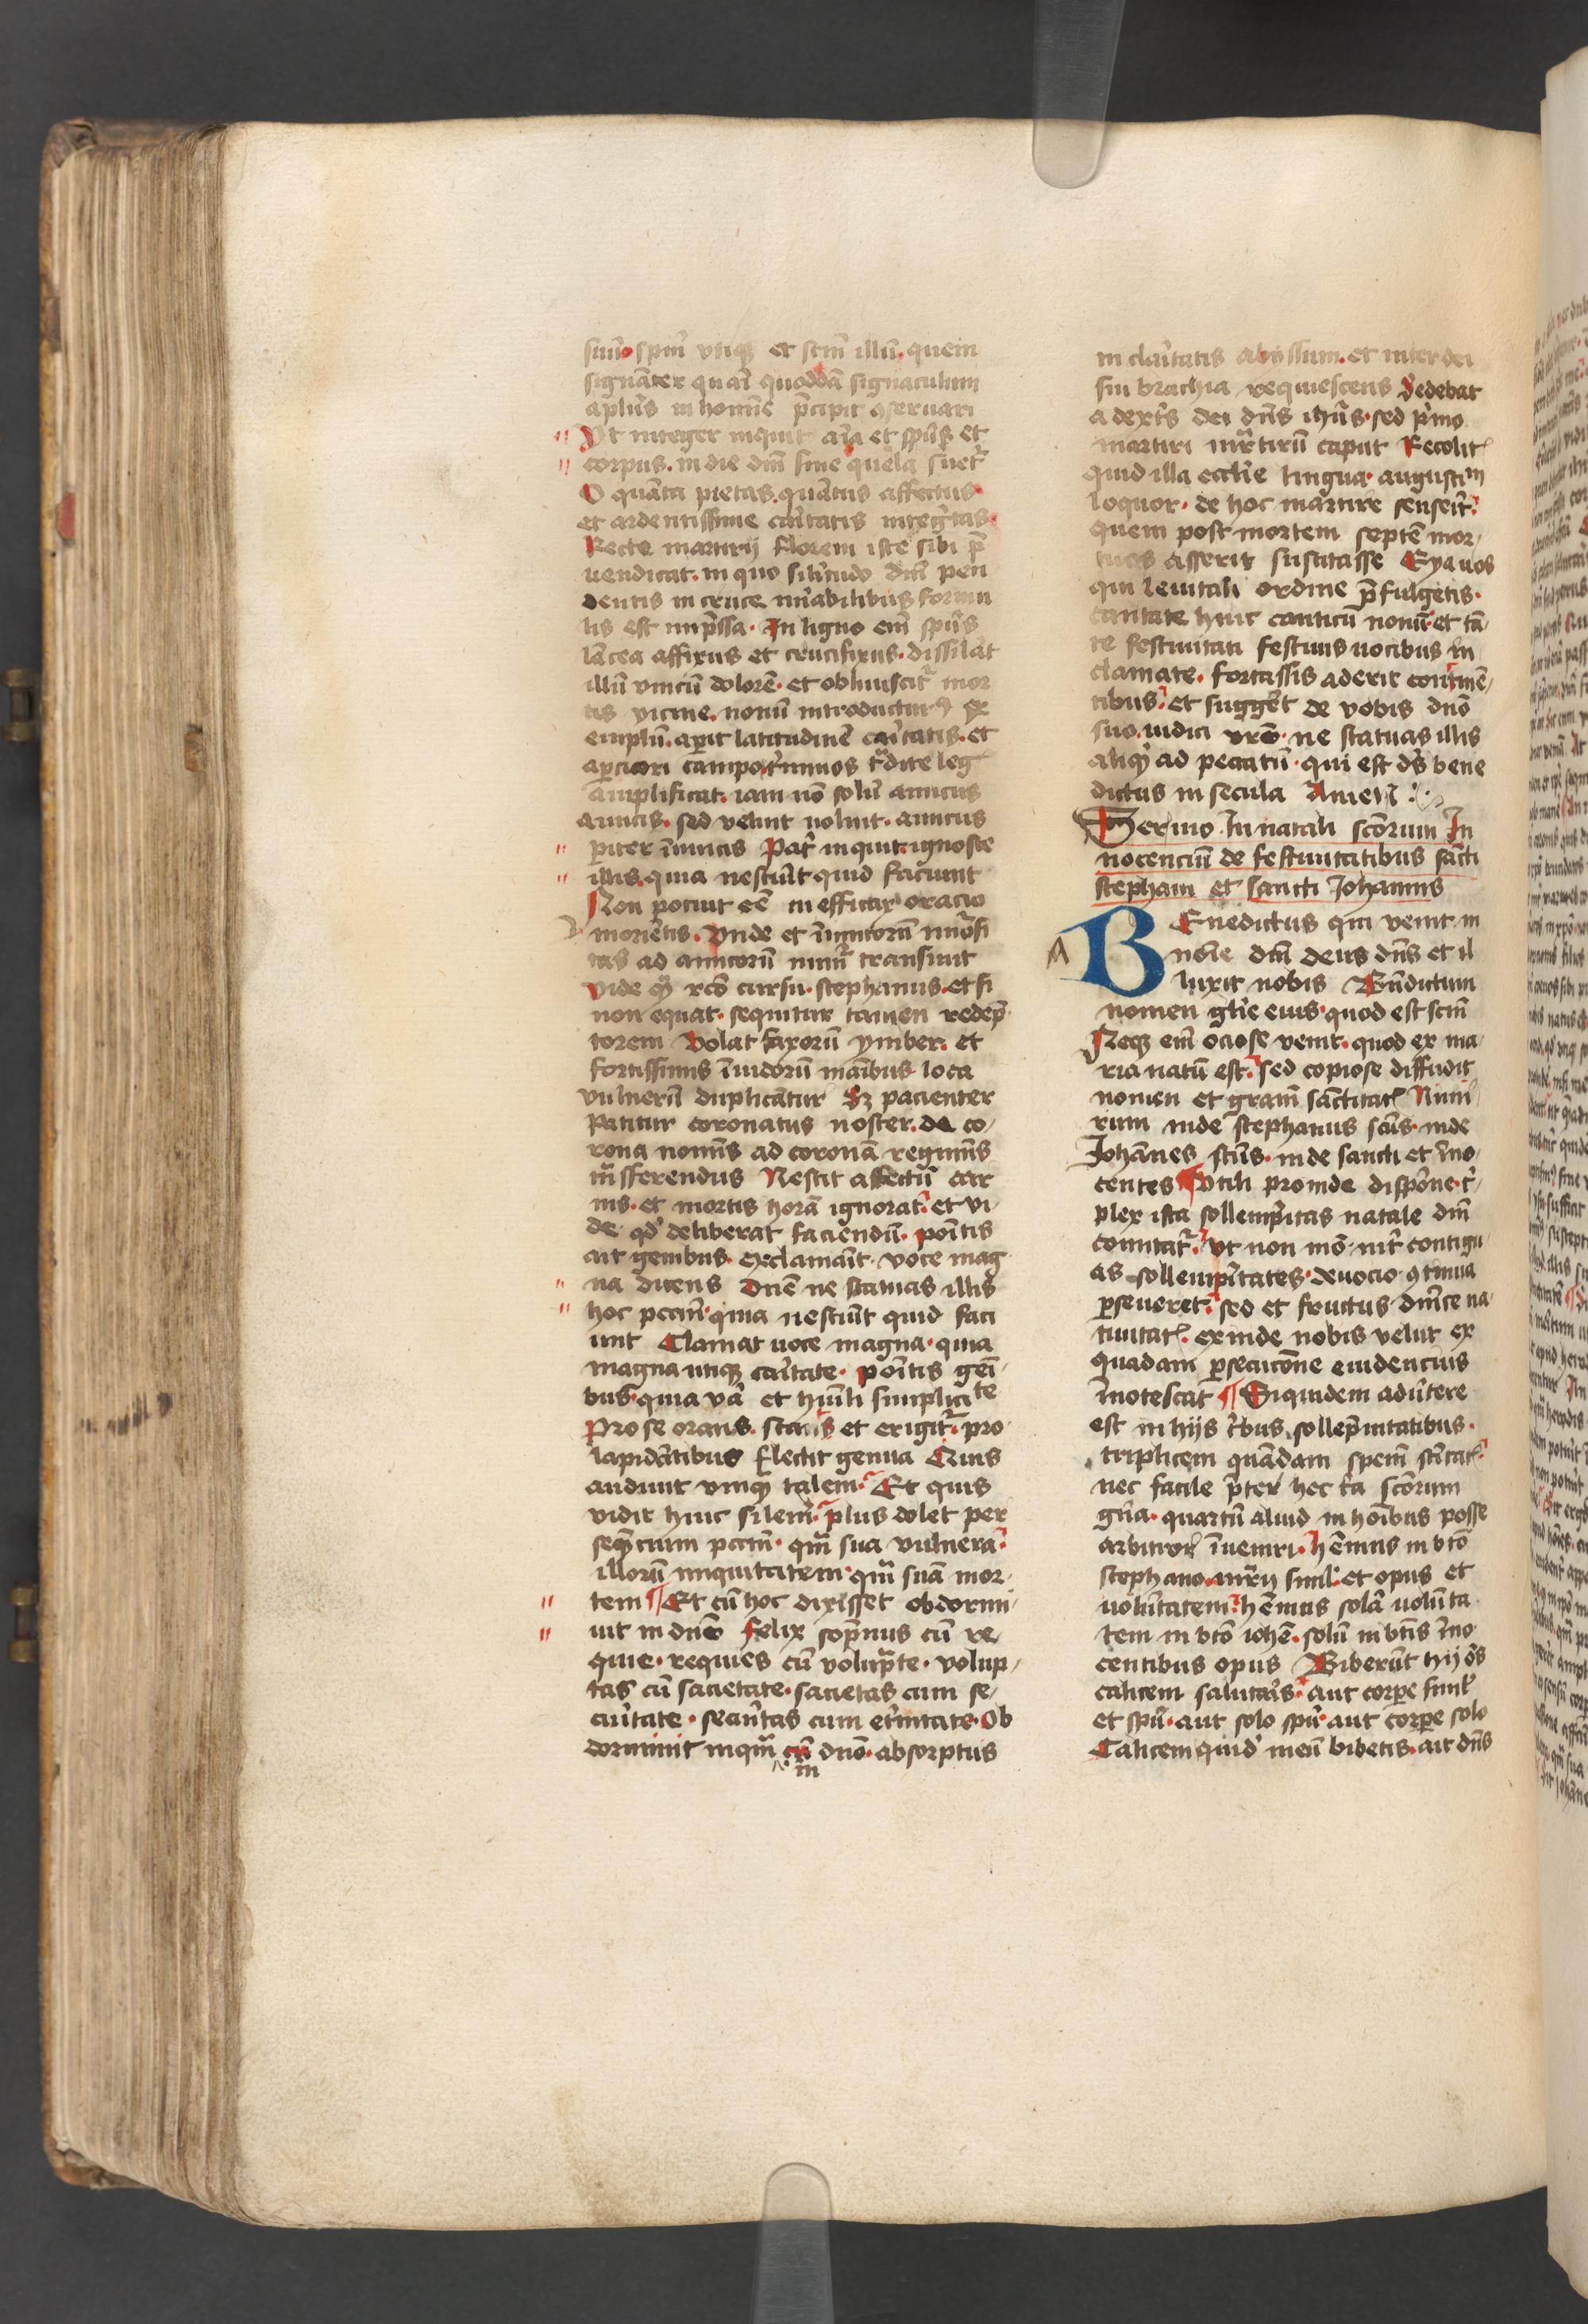 suū spm̄ vtiqꝫ et scm̄ illū quem
signāter quasi quoddā signaculum
apl̄us in homīe p̄cipit ꝯseruari
Vt integer inquit aīa et spūs et
corpus in die dn̄i sine querela suet᷑
O quāta pietas quātus affectus
et ardentissime caritatis integritas
Recte martirij florem iste sibi p̄
uendicat in quo silitudo dn̄i pen
dentis in cruce mirabilibus formu
lis est imp̄ssa In ligno em̄ spūs
lācea affixus et crucifixus dissilat
illū vnicū dolorē et obliuiscit᷑ mor
tis vicine nouū introductur᷑ ex
emplū aperit latitudinē caritatis et
apciori campo t̄minos t᷑dite leg
amplificat iam nō solū amicus
amicis sed velint nolint amicus
piter īimicis Pat᷑ inquit ignosce
illis quia nesciūt quid faciunt
Non potuit eē inefficax oracio
moriētis Vnde et īimicorū nūosi
tas ad amicorū num᷑ transiuit
vide qͥ rcō cursu stephanus et si
non equat sequitur tamen redēp
torem Volat saxorū ymber et
fortissimis īuidorū manibus loca
vulnerū duplicātur Sꝫ pacienter
Patitur coronatus noster de co
rona nominis ad coronā regiminis
trāsferendus Nescit affectū car
nis et mortis horā ignorat et vi
de qd deliberat faciendū Positis
ait genibus exclamāit voce mag
na dicens Dnē ne statuas illis
hoc pccm̄ quia nesciūt quid faci
unt Clamat uoce magna quia
magna utiqꝫ caritate Positis geni
bus quia va et humili simplicite
Pro se orans stans et erigit᷑ pro
lapidātibus flectit genua Quis
audiuit vnqͣ talem Et quis
vidit huic silem plus dolet per
sequētium pccm̄ qm̄ sua vulnera
illorū iniquitatem qm̄ suā mor
tem Et cū hoc dixisset obdormi
uit in dnō Felix sopnus cū re
quie requies cū voluptate volup
tas cū sacietate sacietas cum se
curitate securitas cum et᷑nitate Ob
dormiuit inqͣ cū dnō absorptus
in
in claritatis abyssum et inter dei
sui brachia requiescens Videbat
a dextris dei dn̄s ihūs sed primo
martiri mr̄tirū caput Recolit᷑
quid illa ecclīe lingua augustinͫ
loquor de hoc martire senserit
quem post mortem septē mor
tuos asserit suscitasse Eya uos
qui leuitali ordine p̄fulgetis
cantate huic canticū nouū et tā
te festiuitati festiuis uocibus in
clamate fortassis aderit continē
tibus et sugget de vobis dnō
suo iudici vrō ne statuas illis
aliqͥ ad peccatū qui est ds̄ bene
dictus in secula Amen
Sermo In natali scōrum In
nocenciū de festiuitatibus sācti
stephani et sancti Johannis
A
BEnedictus qui venit in
noīe dn̄i deus dn̄s et il
luxit nobis Bn̄dictum
nomen gl̄ie eius quod est scm̄
Neqꝫ em̄ ociose venit quod ex ma
ria natū est sed copiose diffudit
nomen et gram̄ sāctitat᷑ Nimi
rum inde stephanus scūs inde
Johānes scūs inde sancti et īno
centes Vtili proinde dispōne t᷑
plex ista sollempnitas natale dn̄i
comitat᷑ ut non mō int᷑ contigu
as sollempnitates deuocio ꝯtinua
pseueret sed et fructus dn̄ice na
tiuitat᷑ exinde nobis velut ex
quadam psecucōne euidencius
īnotescat Siquidem aduertere
est in hijs tribus sollēpnitatibus
triplicem quādam spem̄ scītat᷑
nec facile p̄ter hec tria scōrum
gn̄a quartū aliud in hoībus posse
arbitror īueniri hēmus in btō
stephano mr̄ij simul et opus et
uolūtatem hēmus solā uolūta
tem in btō iohē solū in btīs īno
centibus opus Biberūt hij ōs
calicem salutaris aut corpe simul
et spū aut solo spū aut corpe solo
Calicem quid meū bibetis ait dn̄s